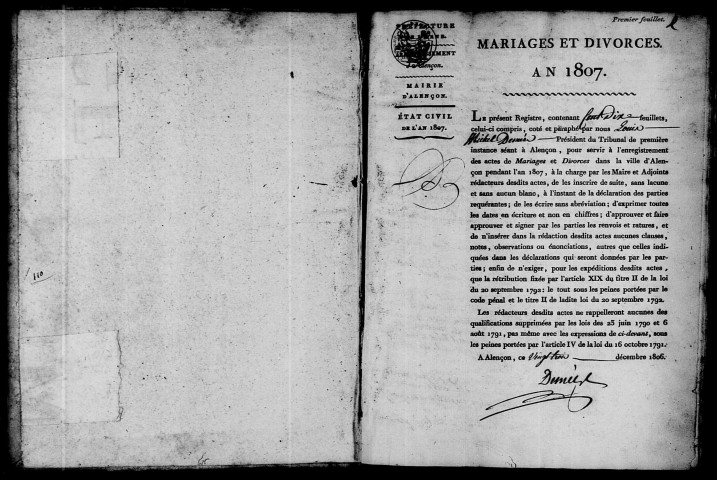 110
Premier feuillet.
PRÉFECTURE
DE L'ORNE.
ARRONDISSEMENT
d'Alençon.
MAIRIE
D'ALENÇON.
ÉTAT CIVIL
DE L'AN 1807.
MARIAGES ET DIVORCES.
AN 1807.
LE présent Registre, contenant Cent Dix feuillets,
celui-ci compris, coté et paraphé par nous Louis
Michel Demées Président du Tribunal de première
instance séant à Alençon, pour servir à l'enregistrement
des actes de Mariages et Divorces dans la ville d'Alen-
çon pendant l'an 1807, à la charge par les Maire et Adjoints
rédacteurs desdits actes, de les inscrire de suite, sans lacune
et sans aucun blanc, à l'instant de la déclaration des parties
requérantes; de les écrire sans abréviation; d'exprimer toutes
les dates en écriture et non en chiffres; d'approuver et faire
approuver et signer par les parties les renvois et ratures, et
de n'insérer dans la rédaction desdits actes aucunes clauses,
notes, observations ou énonciations, autres que celles indi-
quées dans les déclarations qui seront données par les par-
ties; enfin de n'exiger, pour les expéditions desdits actes,
que la rétribution fixée par l'article XIX du titre II de la loi
du 20 septembre 1792: le tout sous les peines portées par le
code pénal et le titre II de ladite loi du 20 septembre 1792.
Les rédacteurs desdits actes ne rappelleront aucunes des
qualifications supprimées par les lois des 23 juin 1790 et 6
août 1791, pas même avec les expressions de ci-devant, sous
les peines portées par l'article IV de la loi du 16 octobre 1791.
A Alençon, ce Vingt trois décembre 1806.
Demées